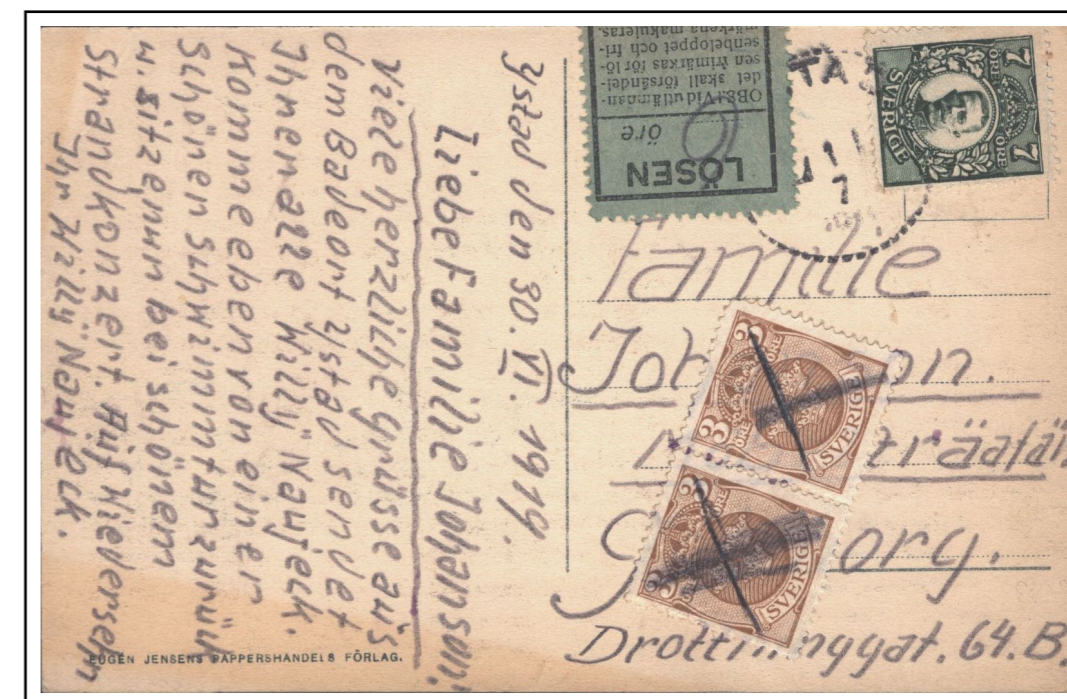 Ystad den 30. VI. 1919.
Liebe Familie Johanson.
Viele herzliche grüsse aus
dem Badeort Ystad sendet
Ihnen alle Willy Naujeck.
Komme eben von einer
Schönen Schwimmtur zurück
u. sitze nun bei schönem
Strandkonzert. Auf Wiedersehn
Ihr Willy Naujeck.
EUGEN JENSENS PAPPERSHANDELS FÖRLAG.
LÖSEN
öre
OBS.! Vid utlämnan-
det skall försändel-
sen frimärkas för lö-
senbeloppet och fri-
märkena makuleras.
7 ÖRE ÖRE 7
SVERIGE
Familie
Drottninggat. 64. B.
3 ÖRE
SVERIGE
3 ÖRE
SVERIGE